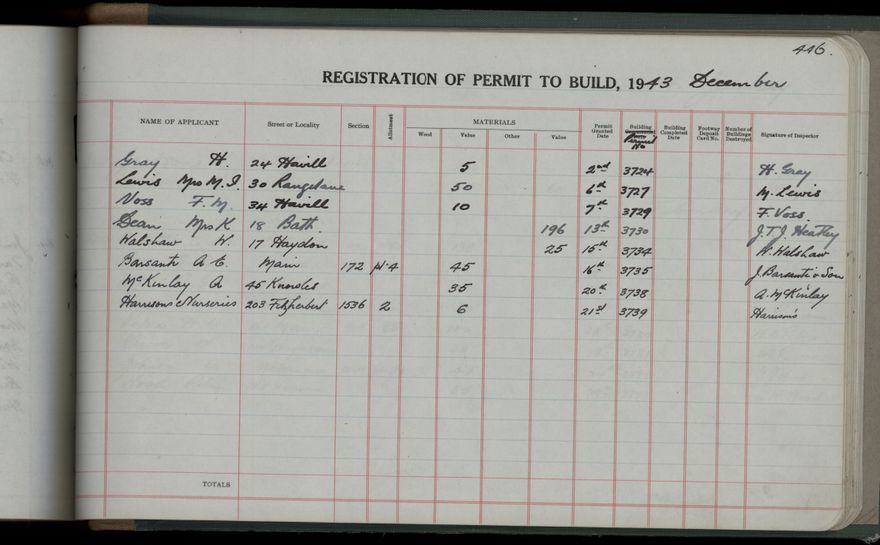 446.
REGISTRATION OF PERMIT TO BUILD, 1943 December
NAME OF APPLICANT Street or Locality Section Allotment MATERIALS Permit Granted Date Building Permit No Building Completed Date Footway Deposit Card No. Number of Buildings Destroyed Signature of Inspector
Wood Value Other Value
Gray H. 24 Havill 5 2nd 3724 H. Gray
Lewis Mrs M. I. 30 Rangitane 50 6th 3727 M. Lewis
Voss F. M. 34 Havill 10 7th 3729 F. Voss.
Dean Mrs K 18 Bath. 196 13th 3730 J. T. J. Heatley
Walshaw W. 17 Haydon 25 15th 3734 W. Walshaw
Barsanti A. C. Main 172 pt 4 45 16th 3735 J. Barsanti & Son
McKinlay A 45 Knowles 35 20th 3738 A. McKinlay
Harrisons Nurseries 203 Fitzherbert 1536 2 6 21st 3739 Harrison's
TOTALS